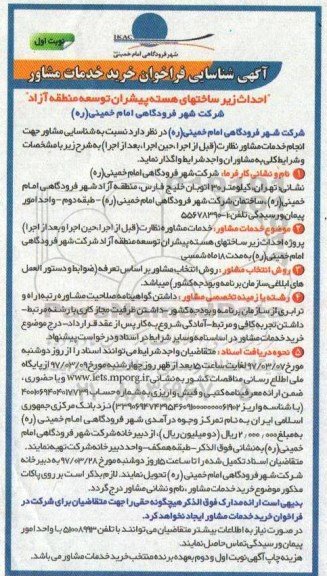 نوبت اول
IKAC
شهر فرودگاهی امام خمینی
آگهی شناسایی فراخوان خرید خدمات مشاور
"احداث زیر ساختهای هسته پیشران توسعه منطقه آزاد"
شرکت شهر فرودگاهی امام خمینی(ره)
شرکت شهر فرودگاهی امام خمینی(ره) در نظر دارد نسبت به شناسایی مشاور جهت
انجام خدمات مشاور نظارت(قبل از اجرا،حین اجرا،بعد از اجرا) به شرح زیر با مشخصات
و شرایط کلی به مشاوران واجد شرایط واگذار نماید.
۱ نام و نشانی کارفرما: شرکت شهر فرودگاهی امام خمینی(ره)
نشانی: تهران، کیلومتر ۳۰ اتوبان خلیج فارس، منطقه آزاد شهر فرودگاهی امام
خمینی(ره)، ساختمان شرکت شهر فرودگاهی امام خمینی(ره) - طبقه دوم - واحد امور
پیمان و رسیدگی تلفن: ۶-۵۵۶۷۸۳۹۰
۲ موضوع خدمات مشاور: خدمات مشاوره نظارت(قبل از اجرا،حین اجرا و بعد از اجرا)
پروژه احداث زیر ساختهای هسته پیشران توسعه منطقه آزاد شرکت شهر فرودگاهی
امام خمینی(ره) به مدت ۱۸ ماه شمسی
۳ روش انتخاب مشاور: روش انتخاب مشاور بر اساس تعرفه (ضوابط و دستور العمل
های ابلاغی سازمان برنامه و بودجه کشور) میباشد.
۴ رشته یا زمینه تخصصی مشاور: داشتن گواهینامه صلاحیت مشاوره رتبه راه و
ترابری از سازمان برنامه و بودجه کشور - داشتن ظرفیت مجاز کاری با رشته مرتبط-
داشتن تجربه کافی و مرتبط-آمادگی شروع به کار پس از عقد قرارداد- درج موضوع
خرید خدمات مشاور در اساسنامه و سایر شرایط در اسناد و درخواست پیشنهاد
۵ نحوه دریافت اسناد: متقاضیان واجد شرایط می توانند اسناد را از روز دوشنبه
مورخ ۹۷/۰۳/۰۷ لغایت ساعت ۱۵ بعد از ظهر روز چهارشنبه مورخ ۹۷/۰۳/۰۹ از پایگاه
ملی اطلاع رسانی مناقصات کشور به نشانی www.iets.mporg.ir و یا حضوری،
ضمن ارائه معرفی‌نامه کتبی و فیش واریزی به شماره حساب
با شناسه واریز نزد بانک مرکزی جمهوری
اسلامی ایران به نام تمرکز وجوه درآمدی شهر فرودگاهی امام خمینی (ره)
به مبلغ ۲,۰۰۰,۰۰۰ ریال (دو میلیون ریال)، از دبیرخانه شرکت شهر فرودگاهی امام
خمینی(ره) به نشانی فوق الذکر-طبقه همکف-واحد دبیرخانه شرکت تهیه نمایند.
متقاضیان اسناد تکمیل شده را تا ساعت ۱۵ روز دوشنبه مورخ ۹۷/۰۳/۲۸ به دبیرخانه
شرکت شهر فرودگاهی امام خمینی (ره) تحویل نمایند. لازم بذکر است بر روی پاکات
مذکور موضوع خرید خدمات مشاور، نام و نشانی مشاور درج گردد.
بدیهی است ارائه مدارک فوق الذکر هیچگونه حقی را جهت متقاضیان برای شرکت در
فراخوان خرید خدمات مشاور ایجاد نخواهد کرد.
در صورت نیاز به اطلاعات بیشتر متقاضیان می توانند با تلفن ۵۱۰۰۸۹۹۳ با واحد امور
پیمان و رسیدگی تماس حاصل نمایند.
هزینه چاپ آگهی نوبت اول و دوم بعهده برنده منتخب خرید خدمات مشاور می باشد.